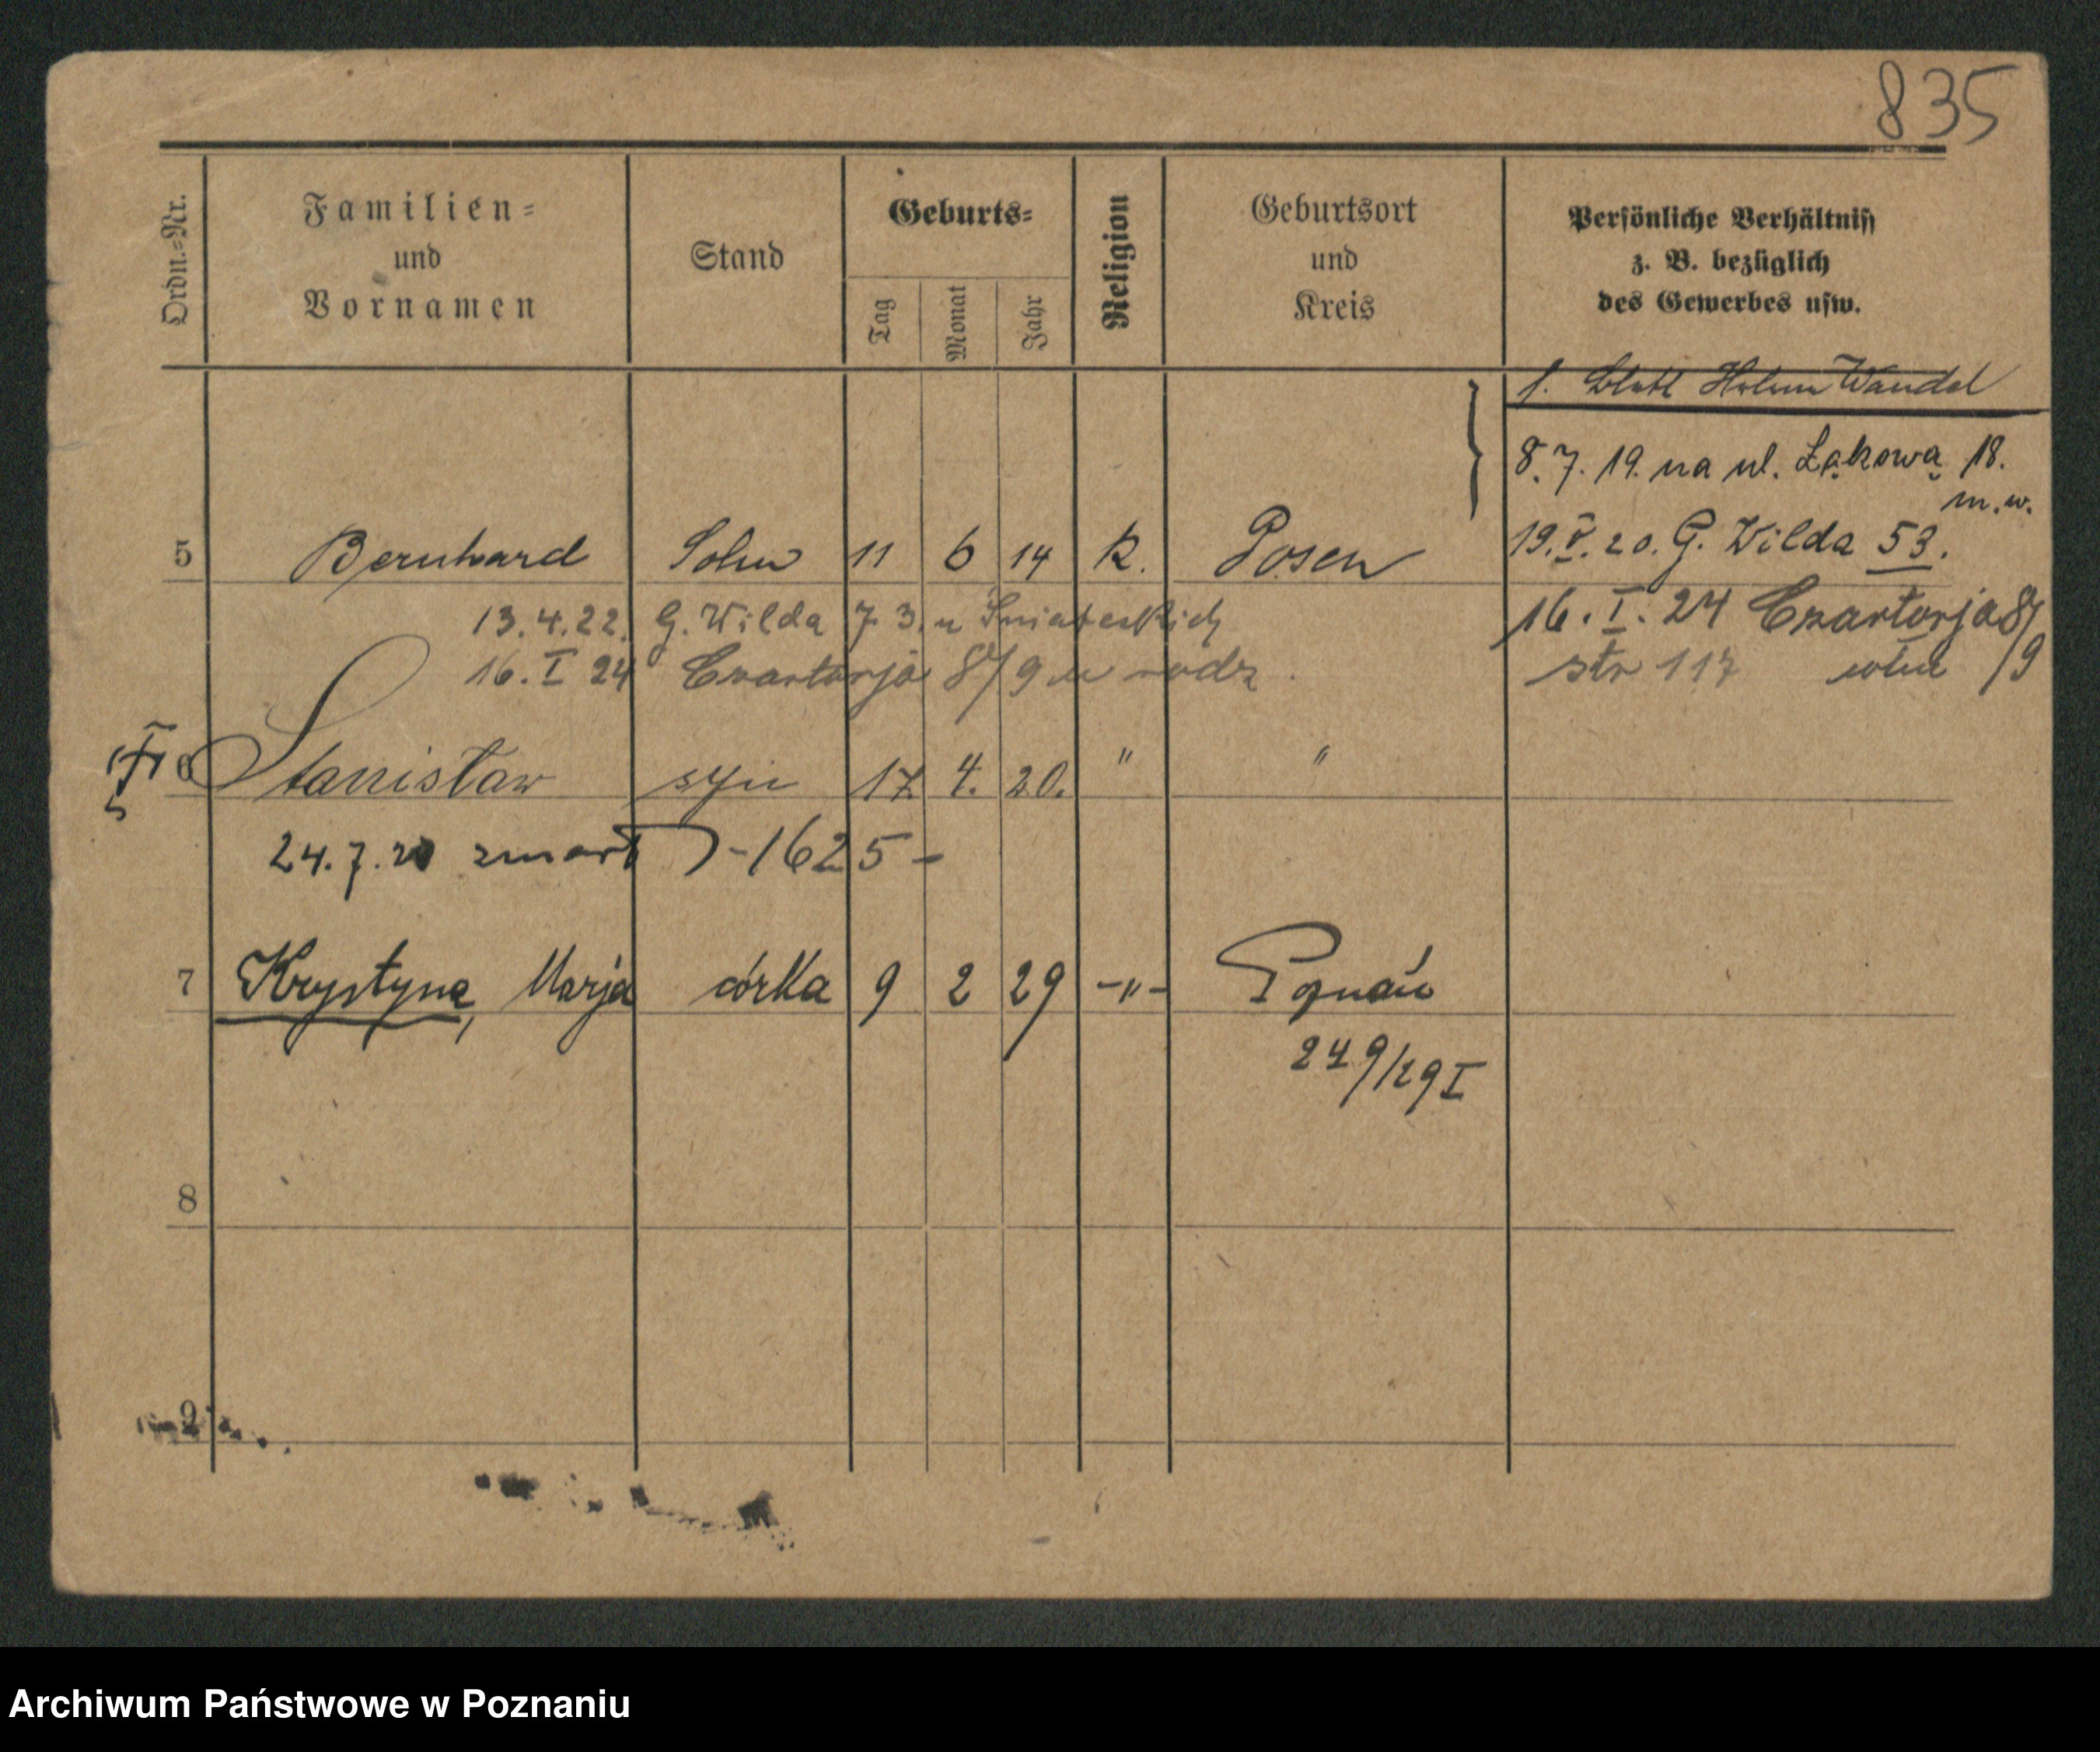 835
Ordn.-Nr.
Familien-
und
Vornamen
Stand
Geburts-
Tag
Monat
Jahr
Religion
Geburtsort
und
Kreis
Persönliche Verhältniss
z. B. bezüglich
des Gewerbes usw.
1. Blatt Wandel
8.7.19. na ul. Łąkową 18.
m.w.
5 Bernhard Sohn 11 6 14 K. Posen 19.V.20. G. Wilda 53.
13.4.22. G. Wilda 73. u 16.I.24 Czartorja 8/
16.I 24 Czartorja 8/9 u rodz. str 117 /9
6 Stanisław syn 17. 4. 20. " "
24.7.20 zmarł -1625-
7 Krystyna, Marja córka 9 2 29 -"- Poznań
249/29 I
8
9
Archiwum Państwowe w Poznaniu